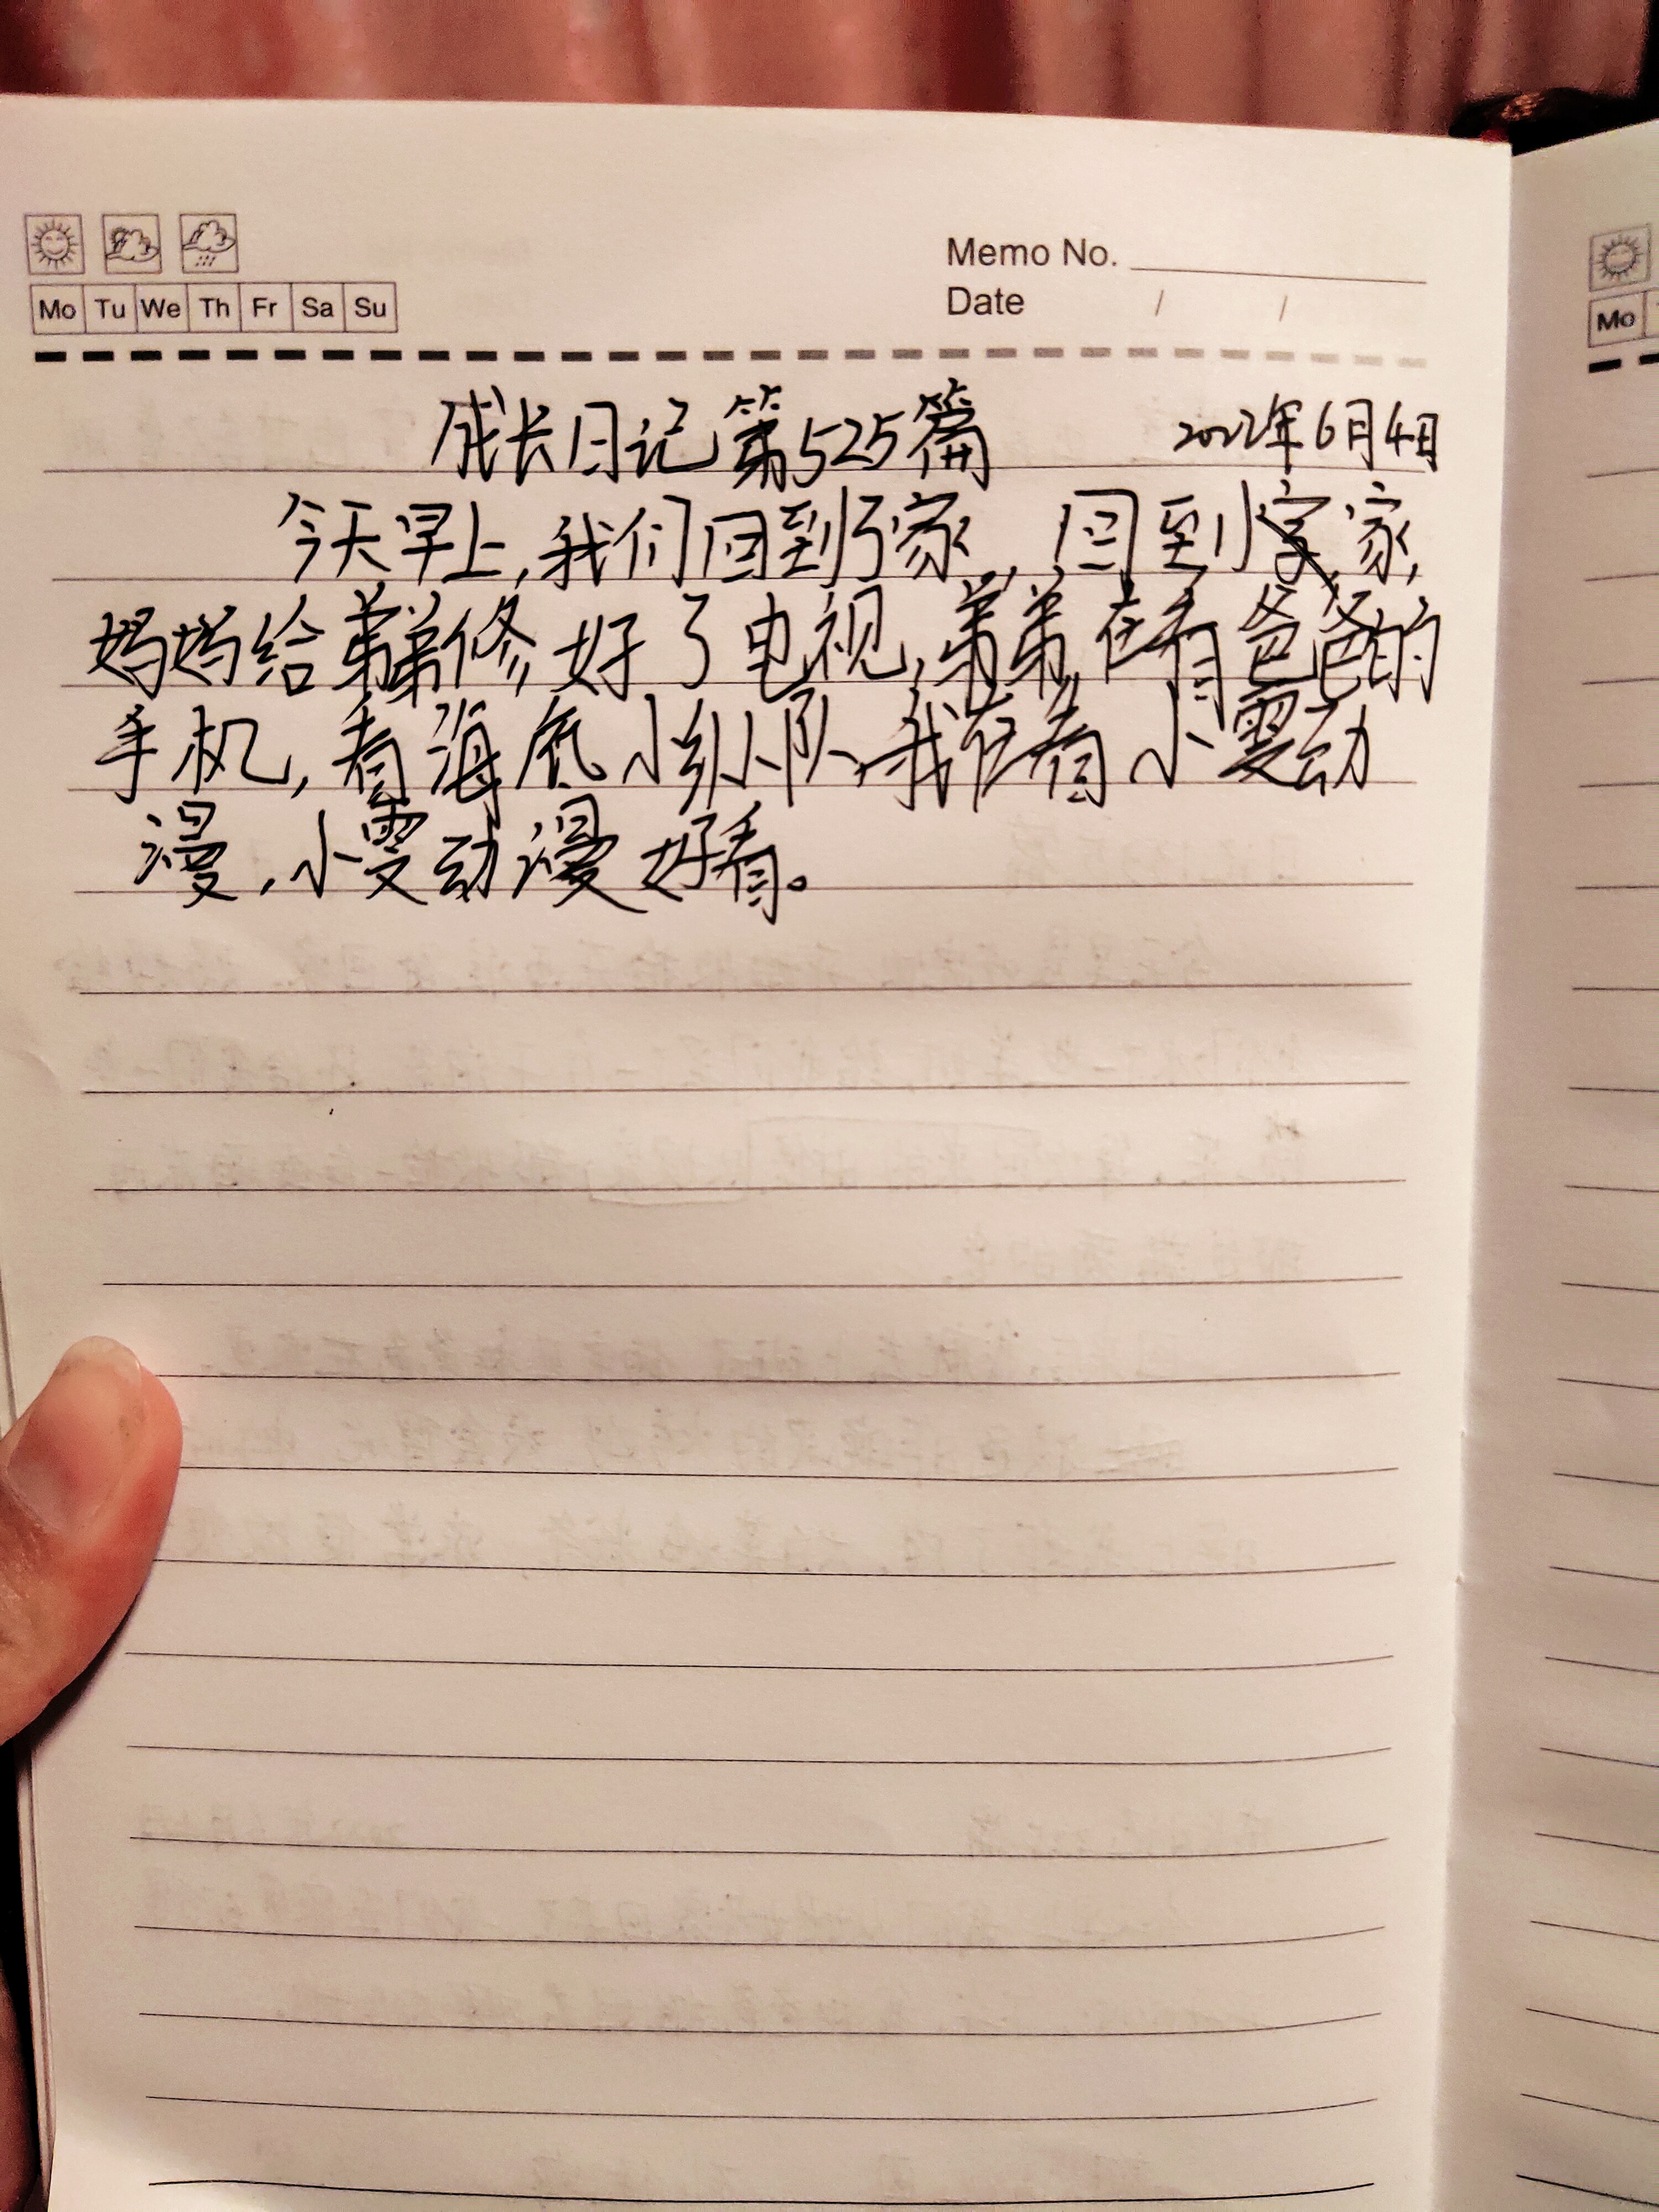 Memo No.
Mo Tu We Th Fr Sa Su
Date / /
Mo
成长日记第525篇 2022年6月4日
今天早上,我们回到了家,回到家,
妈妈给弟弟修好了电视,弟弟在看爸爸的
手机,看海底小纵队,我在看小雯动
漫,小雯动漫好看。